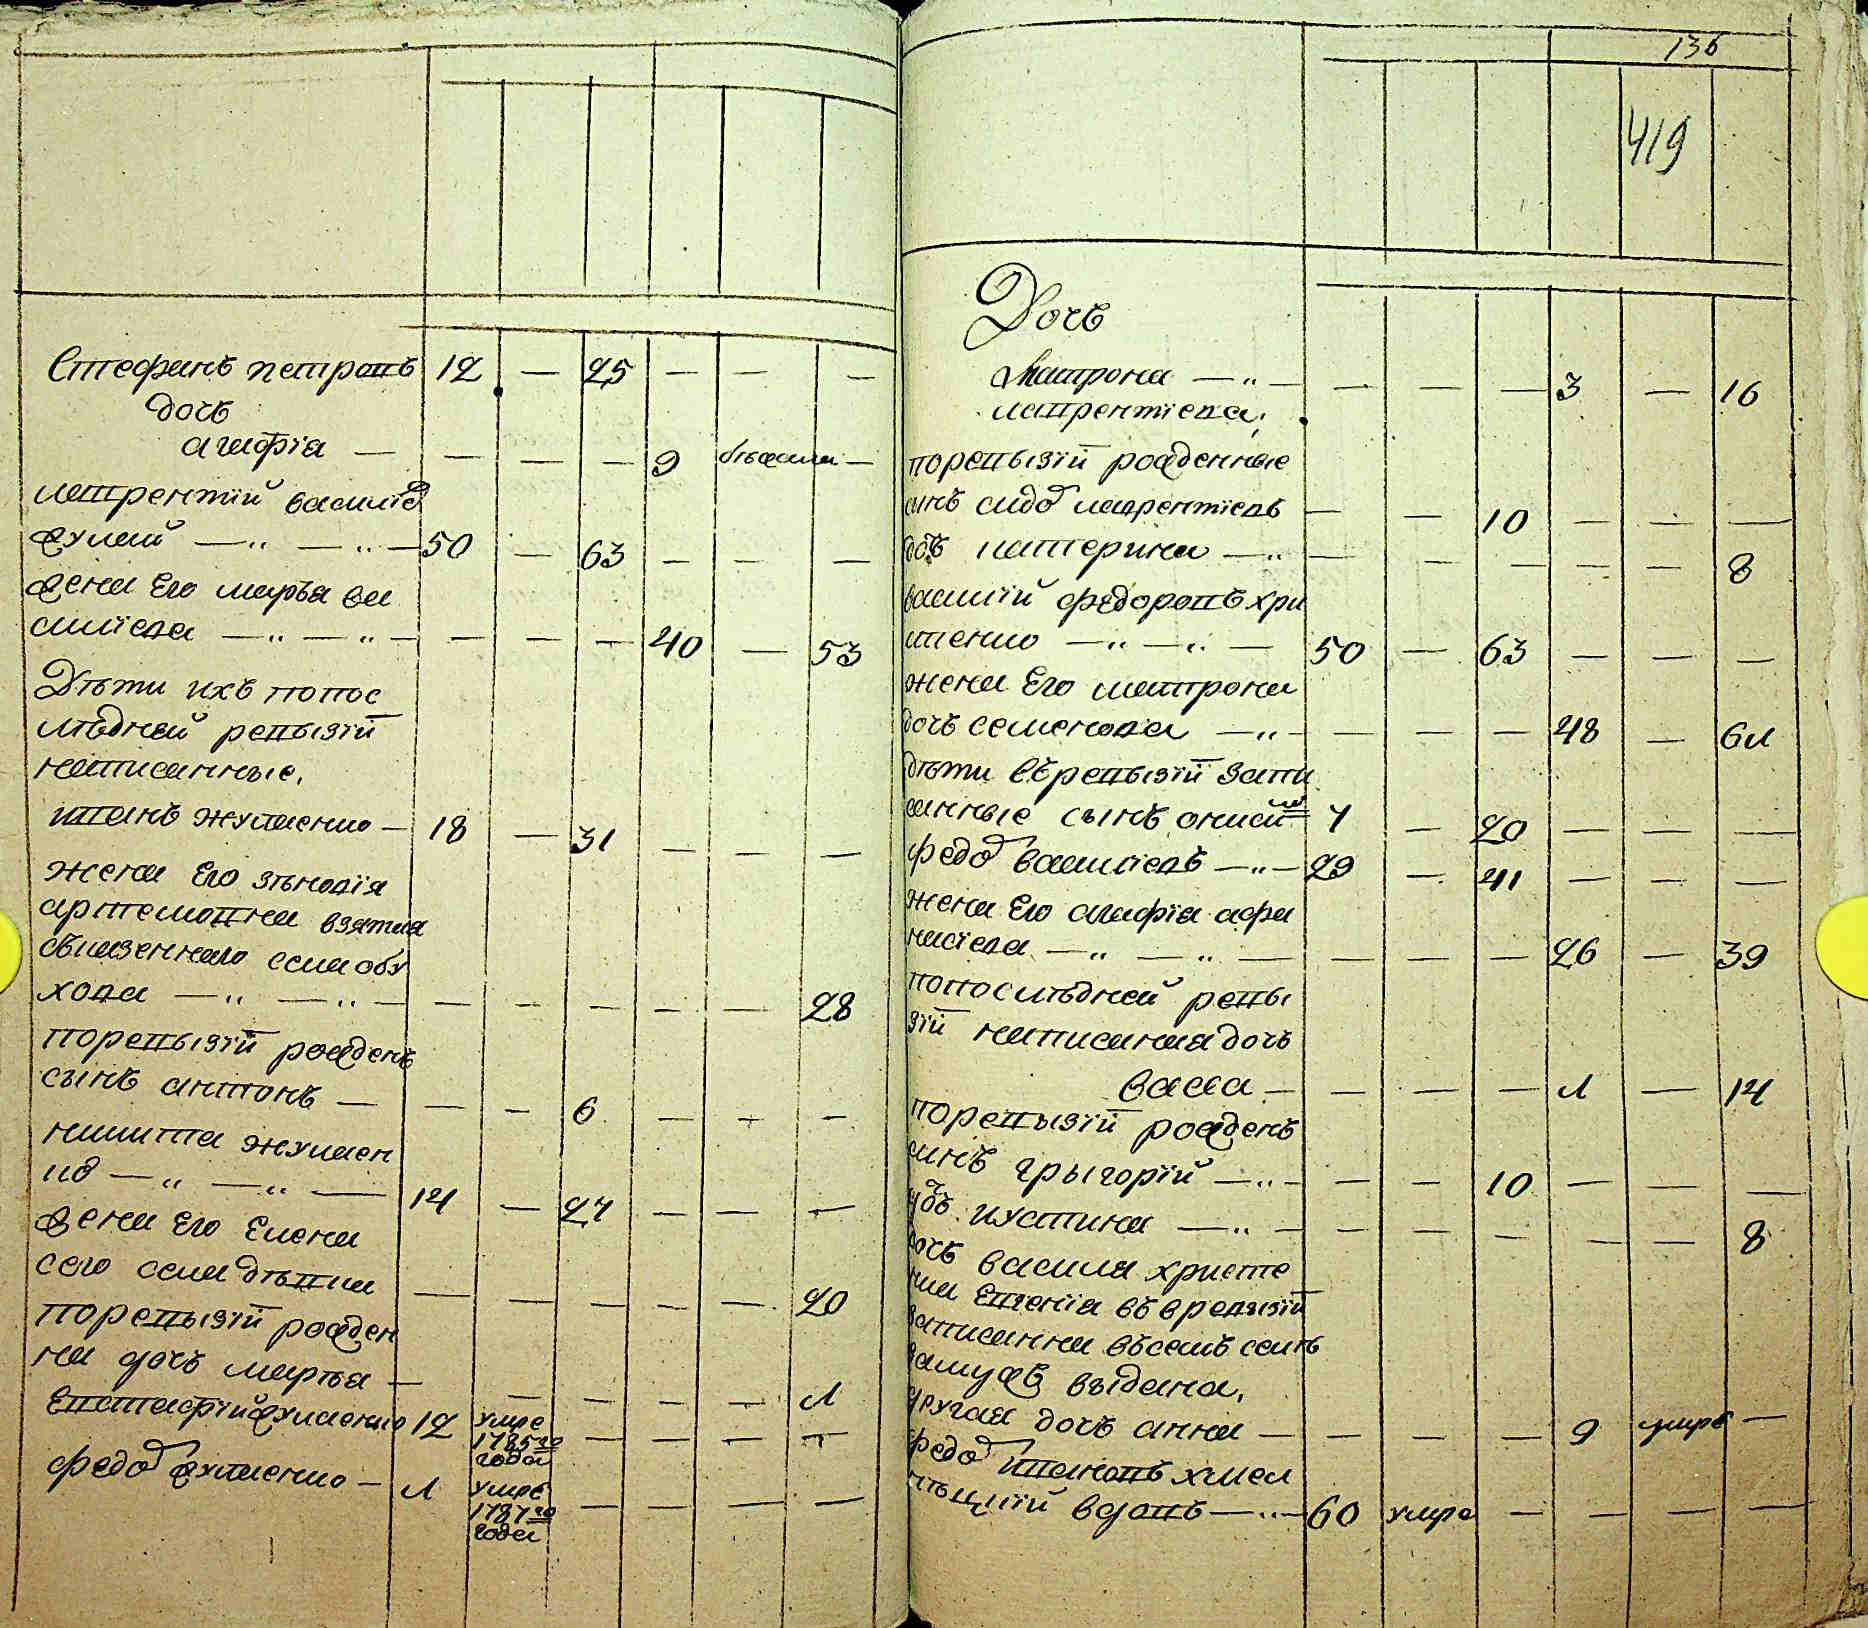 Стефанъ петровъ 12 — 25 — — —
дочь
агафïа — — — — 9 бѣжала —
лаврентïй василïв
жулай — „ — „ — 50 — 63 — — —
жена Его марья ва
силïева — „ — „ — — — — 40 — 53
Дѣти ихъ попос
лѣдней ревызïй
написанные.
иванъ жулаенко — 18 — 31 — — —
жена Его зѣновïя
артемовна взятая
съказенного села обу
хова — „ — „ — — — — — — 28
поревызïй рожденъ
сынъ антонъ — — — 6 — — —
никита жулаен
ко — „ — „ — 14 — 27 — — —
жена Его Елена
сего села дѣвка — — — — — 20
поревызïй рожден
на дочъ марья — — — — — 1
Евстафïй жулаенко 12 умре 1785го года — — — —
федо жулаенко — 1 умре 1787го года — — — —
136
419
Дочь
Матрона — „ — — — — 3 — 16
лаврентïева,
поревызïй рожденные
сынъ сидо лаврентïевъ — — 10 — — —
дочъ катерина — „ — — — — — — 8
василïй федоровъ хри
щенко — „ — „ — 50 — 63 — — —
жена Его матрона
дочъ семенова — „ — — — — 48 — 61
дѣти въревызïй запи
санные сынъ 7 — 20 — — —
федо василïевъ — „ — 29 — 41 — — —
жена Его агафïа афа
насïева — „ — „ — — — — 26 — 39
попослѣдней ревы
зïй написаная дочъ
васса — — — — 1 — 14
поревызïй рожденъ
синъ грыгорïй — „ — — — 10 — — —
дочъ иустина — „ — — — — — — 8
дочъ василя христе
нка Евгенïа въ вревизïй
записанна въсемъ селѣ
замужъ въідана,
другая дочъ анна — — — — 9 умре —
федо ивановъ хмел
ницкïй вдовъ — „ — 60 умре — — — —